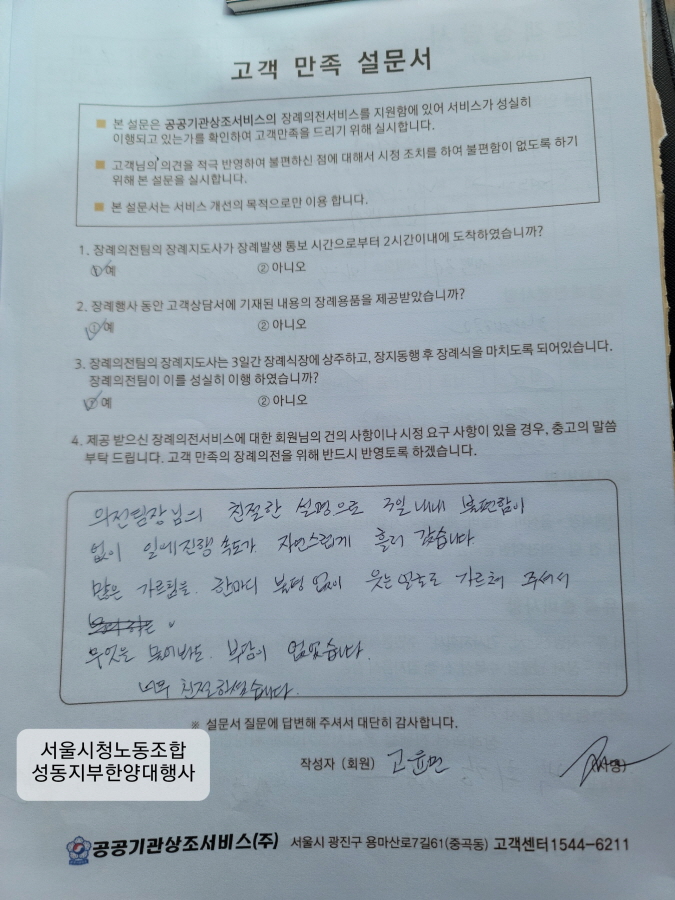 고객 만족 설문서
■ 본 설문은 공공기관상조서비스의 장례의전서비스를 지원함에 있어 서비스가 성실히
이행되고 있는가를 확인하여 고객만족을 드리기 위해 실시합니다.
■ 고객님의 의견을 적극 반영하여 불편하신 점에 대해서 시정 조치를 하여 불편함이 없도록 하기
위해 본 설문을 실시합니다.
■ 본 설문서는 서비스 개선의 목적으로만 이용 합니다.
1. 장례의전팀의 장례지도사가 장례발생 통보 시간으로부터 2시간이내에 도착하였습니까?
① 예 ② 아니오
2. 장례행사 동안 고객상담서에 기재된 내용의 장례용품을 제공받았습니까?
① 예 ② 아니오
3. 장례의전팀의 장례지도사는 3일간 장례식장에 상주하고, 장지동행 후 장례식을 마치도록 되어있습니다.
장례의전팀이 이를 성실히 이행 하였습니까?
① 예 ② 아니오
4. 제공 받으신 장례의전서비스에 대한 회원님의 건의 사항이나 시정 요구 사항이 있을 경우, 충고의 말씀
부탁 드립니다. 고객 만족의 장례의전을 위해 반드시 반영토록 하겠습니다.
의전팀장님의 친절한 설명으로 3일 내내 불편함이
없이 일에진행 속도가 자연스럽게 흘러 갔습니다
많은 가르팀을 한마디 불평 없이 웃는얼굴로 가르쳐 주셔서
무엇을 물어봐도 부담이 없었습니다.
너무 친절하셨습니다.
※ 설문서 질문에 답변해 주셔서 대단히 감사합니다.
작성자 (회원) 고윤민 (서명)
서울시청노동조합
성동지부한양대행사
공공기관상조서비스(주) 서울시 광진구 용마산로7길61(중곡동) 고객센터1544-6211